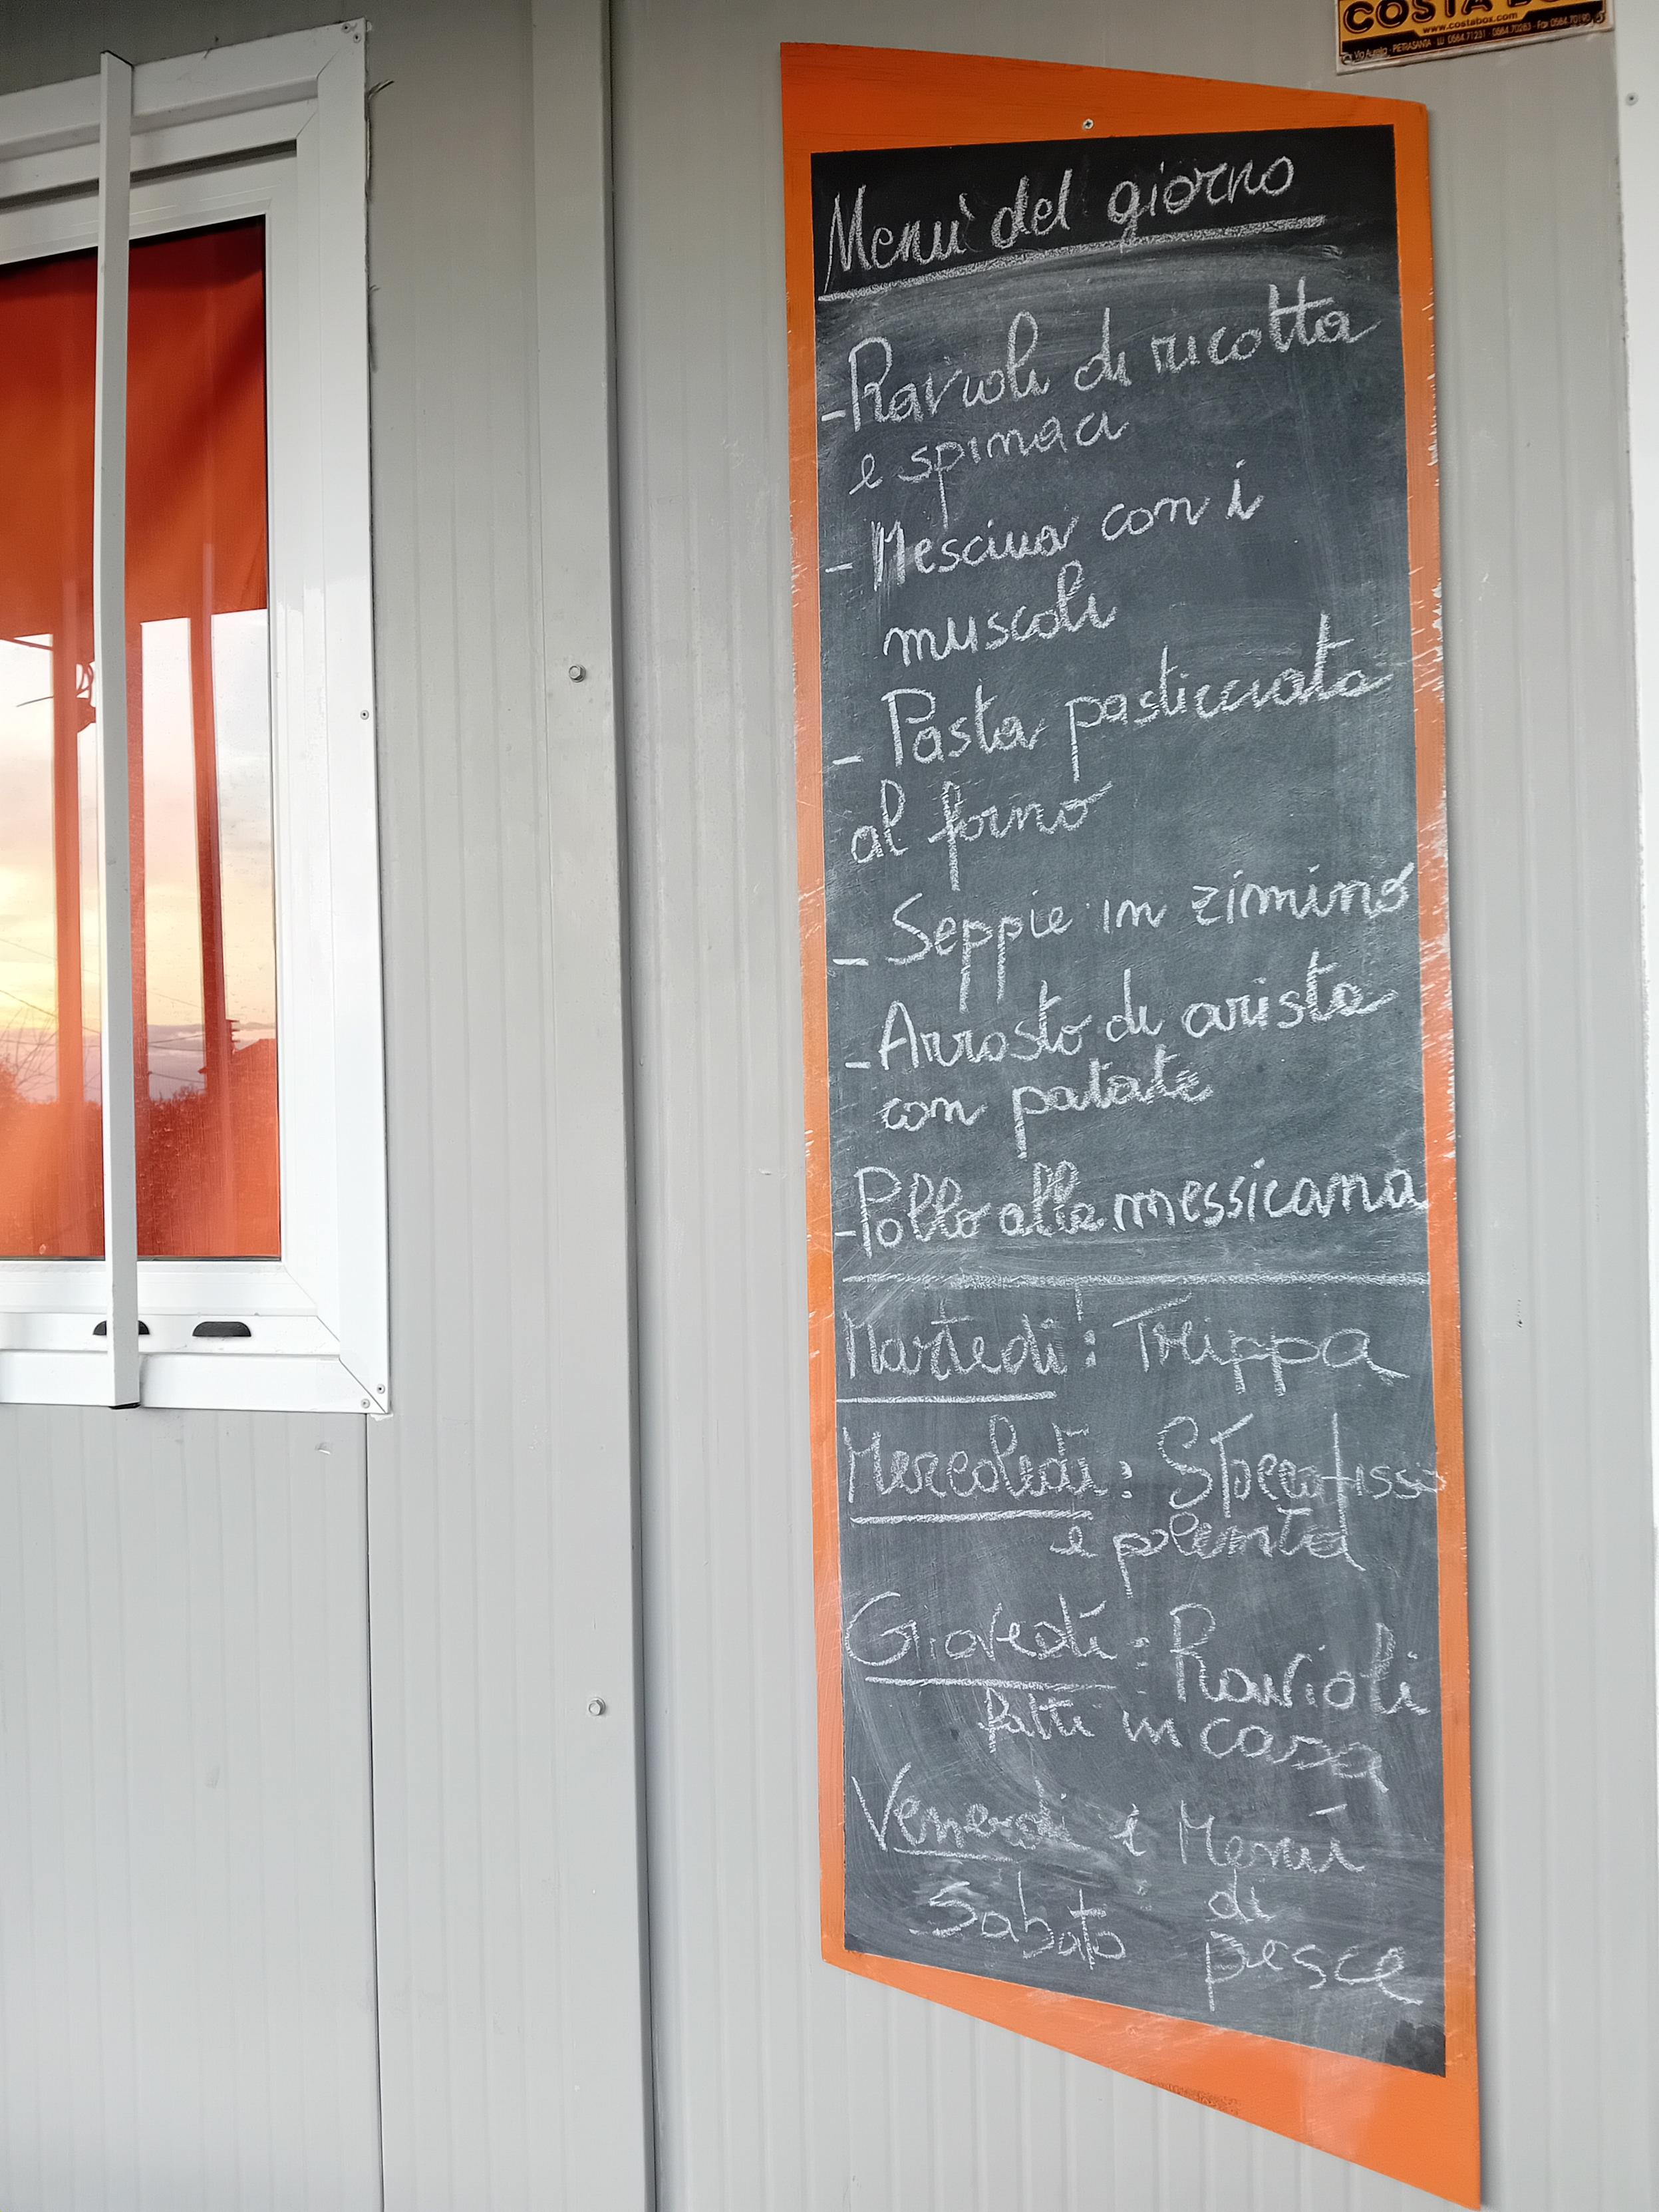 COSTA BOX
www.costabox.com
Via Aurelia - PIETRASANTA - LU
Menù del giorno
- Ravioli di ricotta
e spinaci
- Mesciua con i
muscoli
- Pasta pasticciata
al forno
- Seppie in zimino
- Arrosto di arista
con patate
- Pollo alla messicana
Martedì: Trippa
Mercoledì: Stoccafisso
e polenta
Giovedì: Ravioli
fatti in casa
Venerdì e Menù
Sabato : di
pesce